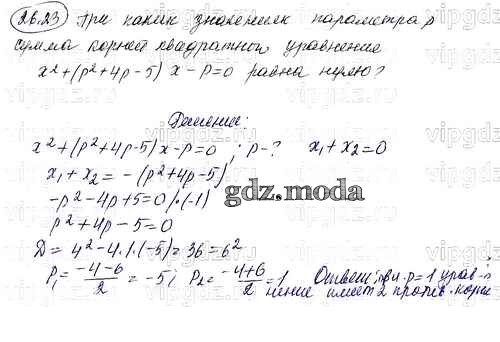 26.23 При каких значениях параметра р
сумма корней квадратного уравнение
x²+(p²+4p-5)x-p=0 равна нулю?
Решение:
x²+(p²+4p-5)x-p=0 ; p-? x₁+x₂=0
x₁+x₂=-(p²+4p-5)
-p²-4p+5=0 |·(-1)
gdz.moda
p²+4p-5=0
D=4²-4·1·(-5)=36=6²
p₁=(-4-6)/2=-5; p₂=(-4+6)/2=1 Ответ: при p=1 урав-
нение имеет 2 против. корня